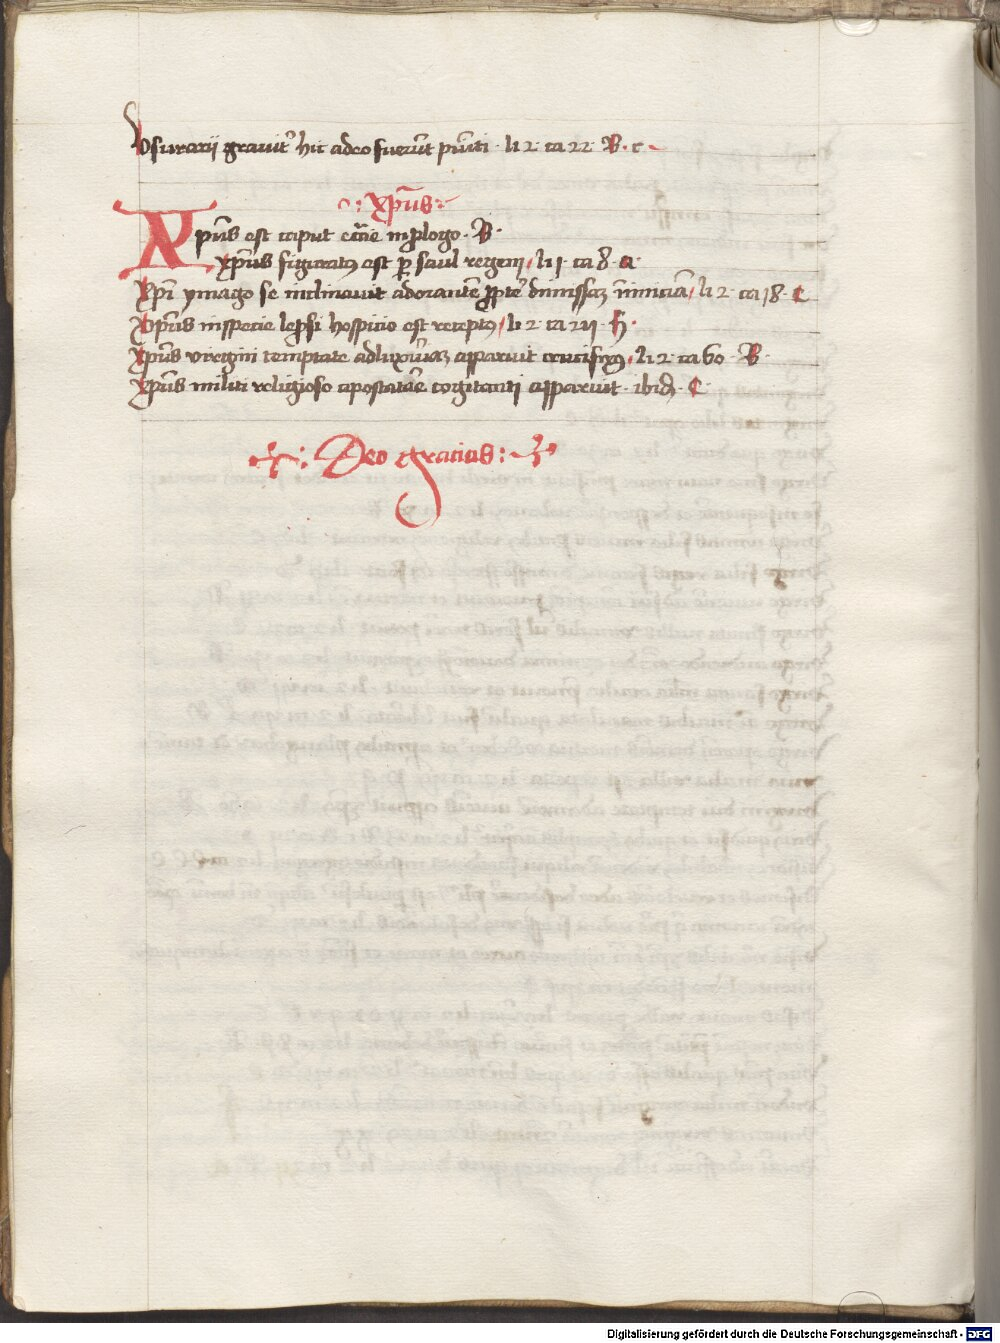 Vsurarii grauit᷑ hic adeo fuer̄t pūiti · li 2 · ca 22 · B · c
: xp̄us :
Xpūs est caput ecc̄ie in ꝓlogo · B ·
xpūs figuratꝯ est ꝑ saul regem / li 1 · ca 8 · a ·
Xpi ymago se inclinauit adorantē ꝓpt᷑ dimissaꝫ inimicā / li 2 · ca 18 · C
Xpūs in specie leprosi hospicio est receptꝯ / li 2 ca · h ·
Xpūs virgini temptate apparuit crucifixꝯ / li 2 · ca 60 · B ·
Xpūs militi religioso apostatare cogitanti apparuit · ibidē · C ·
: Deo gracias :
Digitalisierung gefördert durch die Deutsche Forschungsgemeinschaft - DFG